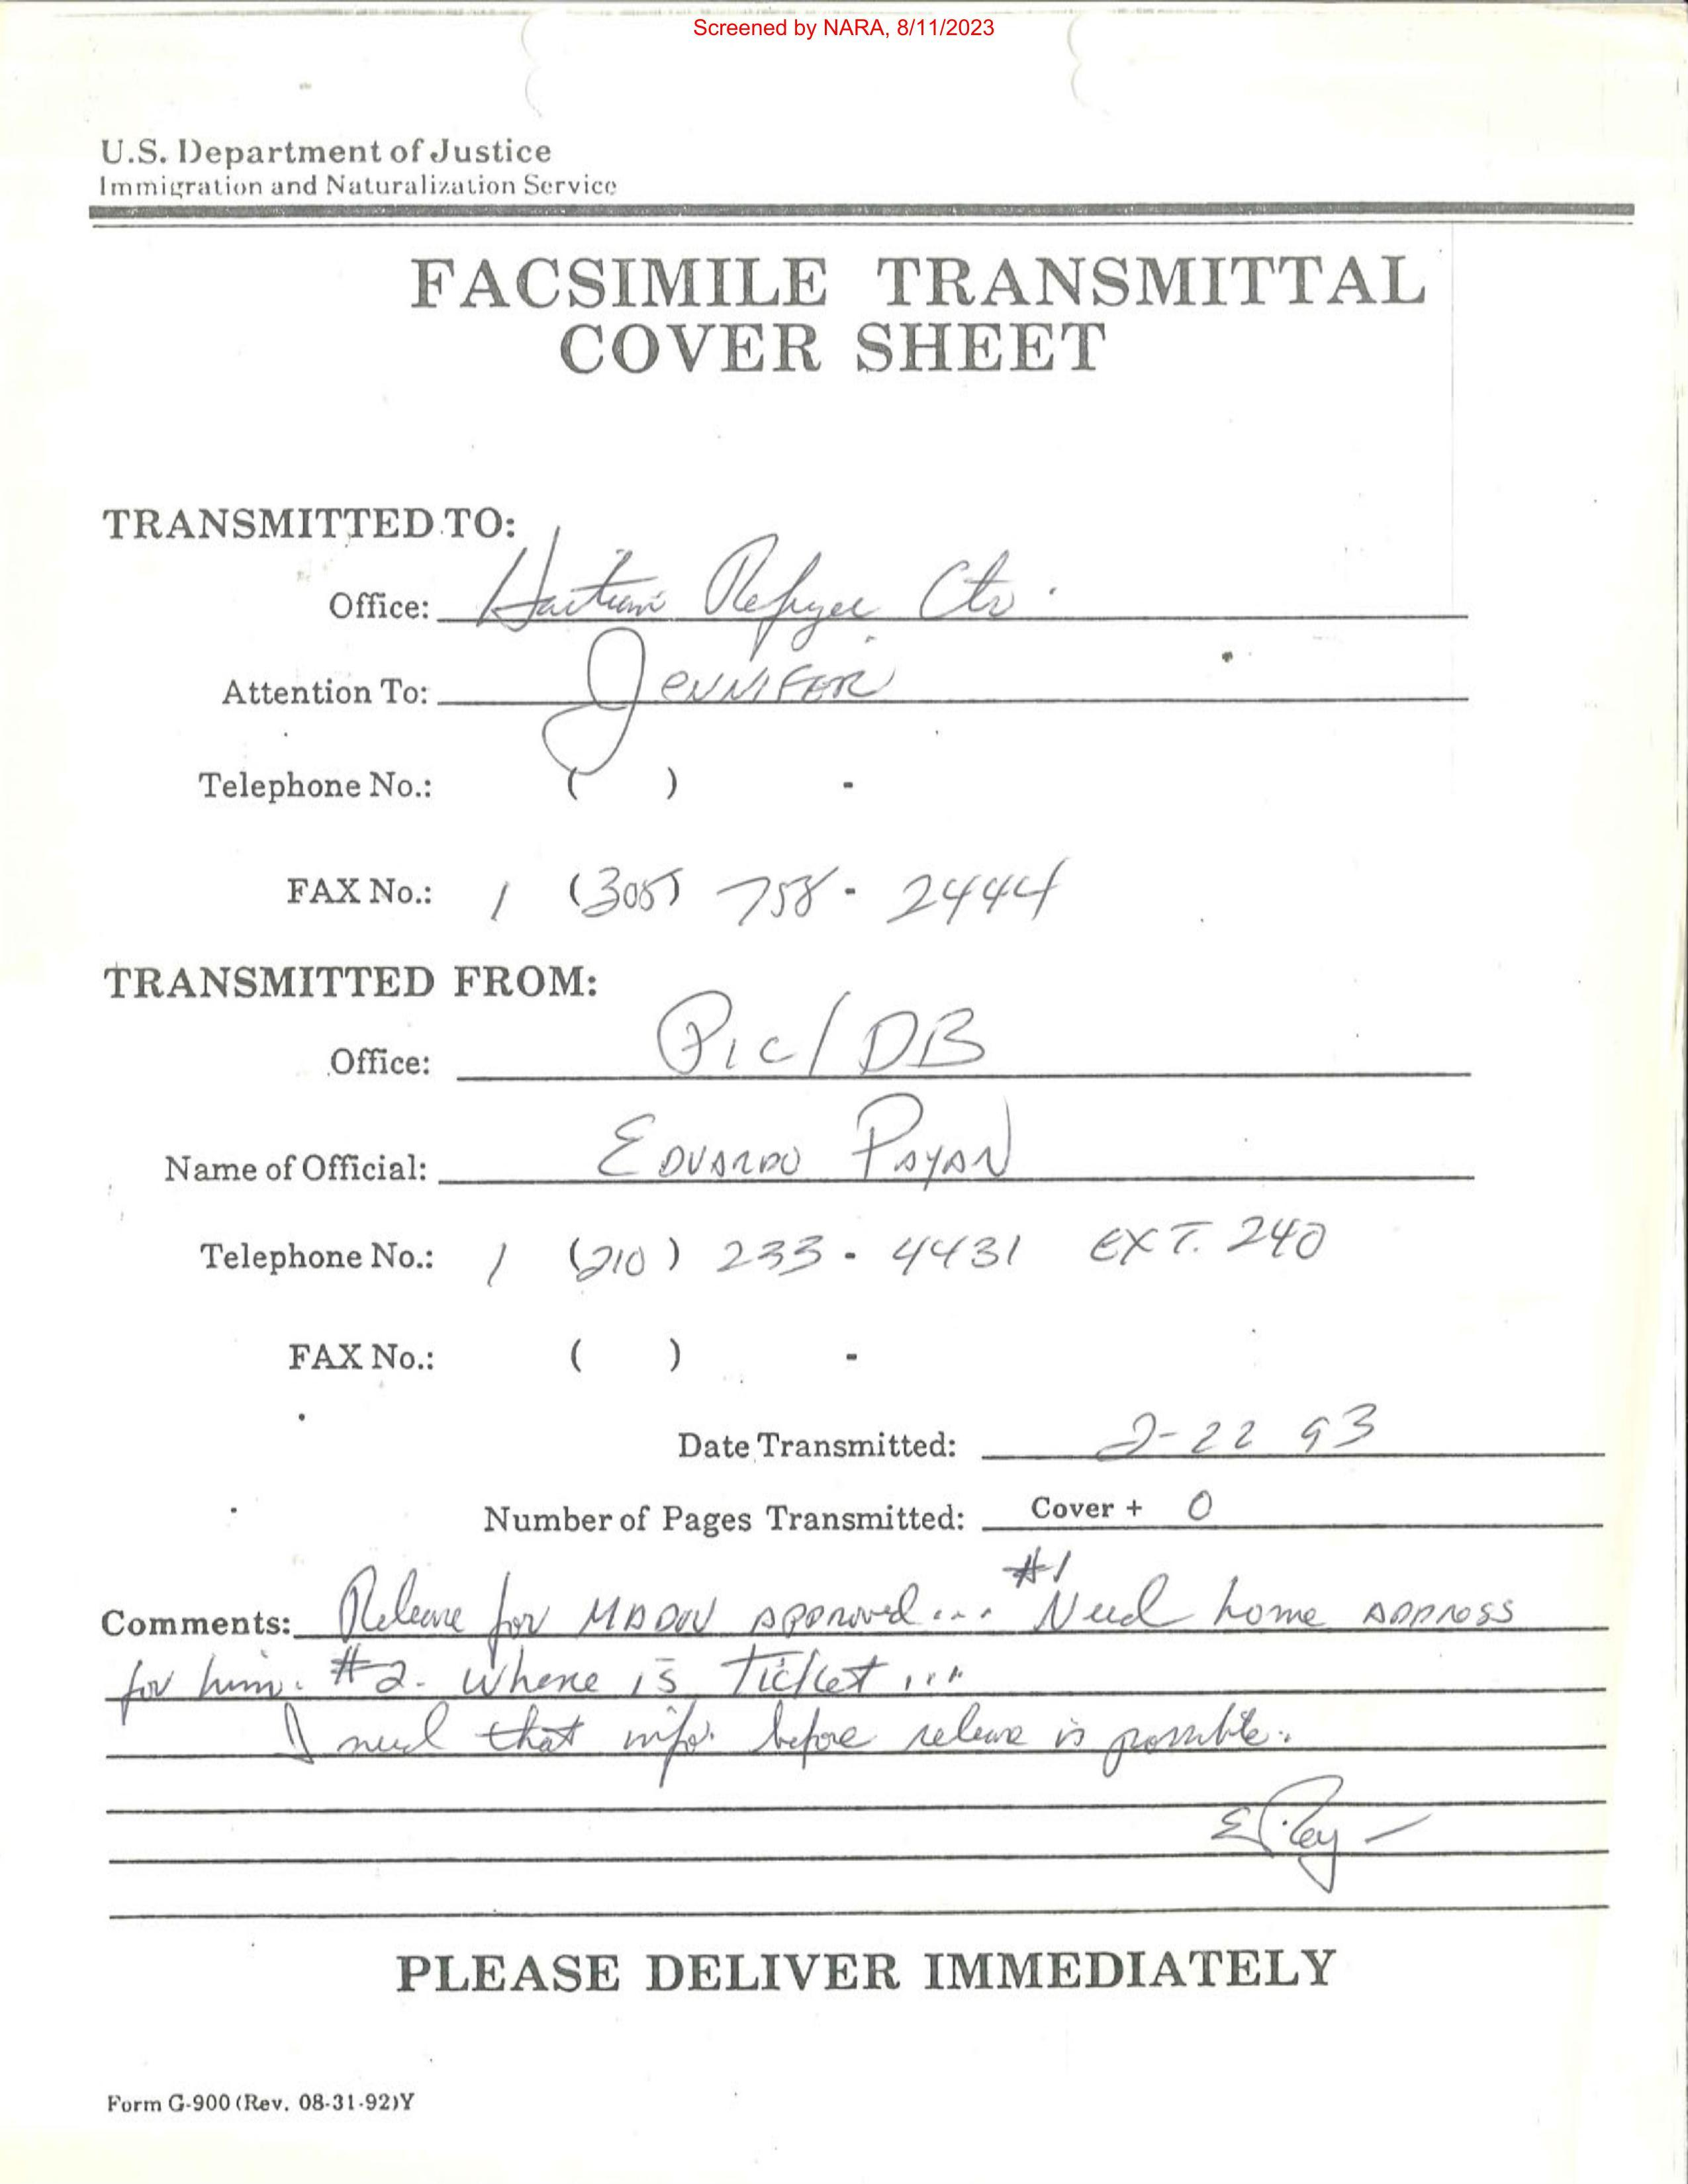 Screened by NARA, 8/11/2023
U.S. Department of Justice
Immigration and Naturalization Service
FACSIMILE TRANSMITTAL
COVER SHEET
TRANSMITTED TO:
Office: Haitian Refugee Ctr.
Attention To: JENNIFER
Telephone No.: ( ) -
FAX No.: 1 (305) 758-2444
TRANSMITTED FROM:
Office: PIC/DB
Name of Official: EDUARDO PAYAN
Telephone No.: 1 (210) 233-4431 EXT. 240
FAX No.: ( ) -
Date Transmitted: 2-22 93
Number of Pages Transmitted: Cover + 0
Comments: Release for approved... #1 Need home ADDRESS
for him. #2. where is Ticket...
I need that info. before release is possible.
PLEASE DELIVER IMMEDIATELY
Form G-900 (Rev. 08-31-92)Y